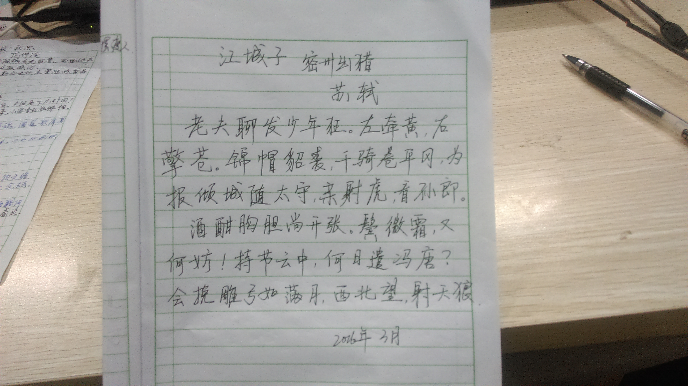 江城子 密州出猎
苏轼
老夫聊发少年狂。左牵黄,右
擎苍。锦帽貂裘,千骑卷平冈,为
报倾城随太守,亲射虎,看孙郎。
酒酣胸胆尚开张。鬓微霜,又
何妨!持节云中,何日遣冯唐?
会挽雕弓如满月,西北望,射天狼
2026年3月